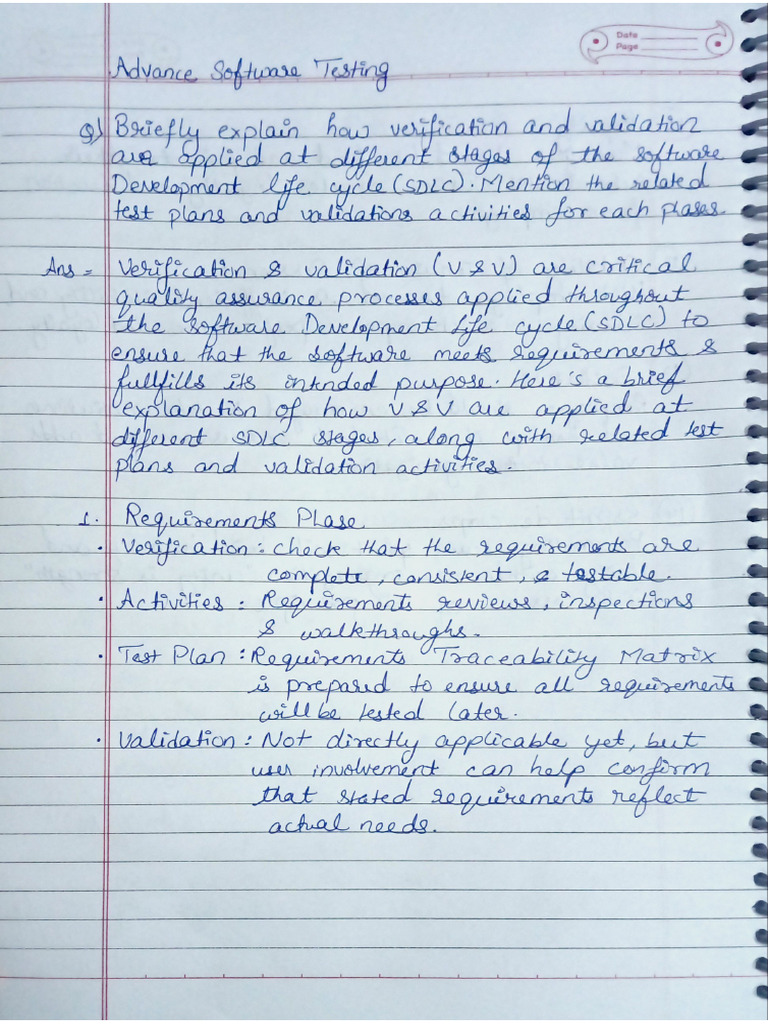 Date
Page
Advance Software Testing
Q) Briefly explain how verification and validation
are applied at different stages of the software
Development life cycle (SDLC). Mention the related
test plans and validations activities for each phases.
Ans = Verification & validation (V & V) are critical
quality assurance processes applied throughout
the software Development Life cycle (SDLC) to
ensure that the software meets requirements &
fullfills its intnded purpose. Here's a brief
explanation of how V & V are applied at
different SDLC stages, along with related test
plans and validation activities.
1. Requirements Phase
• Verification : check that the requirements are
complete, consistent, & testable.
• Activities : Requirements reviews, inspections
& walkthroughs.
• Test Plan : Requirements Traceability Matrix
is prepared to ensure all requirements
will be tested later.
• Validation : Not directly applicable yet, but
user involvement can help confirm
that stated requirements reflect
actual needs.